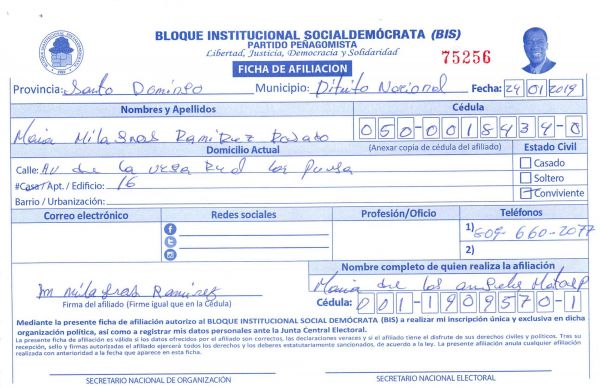 BLOQUE INSTITUCIONAL SOCIALDEMÓCRATA (BIS)
PARTIDO PEÑAGOMISTA
Libertad, Justicia, Democracia y Solidaridad
75256
FICHA DE AFILIACION
Provincia: Santo Domingo Municipio: Ditrito Nacional Fecha: 24 01 2019
Nombres y Apellidos Cédula
Maria Milagros Ramirez Rosario 050-0018434-0
Domicilio Actual (Anexar copia de cédula del afiliado) Estado Civil
Calle: Av de la Vega
Casado
#Casa/Apt. / Edificio: 16 Soltero
Barrio / Urbanización: Conviviente
Correo electrónico Redes sociales Profesión/Oficio Teléfonos
1) 809-660-2077
2)
Nombre completo de quien realiza la afiliación
m milagros Ramirez Maria de los angeles
Firma del afiliado (Firme igual que en la Cédula) Cédula: 001-1909570-1
Mediante la presente ficha de afiliación autorizo al BLOQUE INSTITUCIONAL SOCIAL DEMÓCRATA (BIS) a realizar mi inscripción única y exclusiva en dicha
organización política, así como a registrar mis datos personales ante la Junta Central Electoral.
La presente ficha de afiliación es válida si los datos ofrecidos por el afiliado son correctos, las declaraciones veraces y si el afiliado tiene el disfrute de sus derechos civiles y políticos. Tras su
recepción, sello y firmas autorizadas el afiliado ejercerá todos los derechos y los deberes estatutariamente sancionados, de acuerdo a la ley. La presente afiliación anula cualquier afiliación
realizada con anterioridad a la fecha que aparece en esta ficha.
SECRETARIO NACIONAL DE ORGANIZACIÓN SECRETARIO NACIONAL ELECTORAL